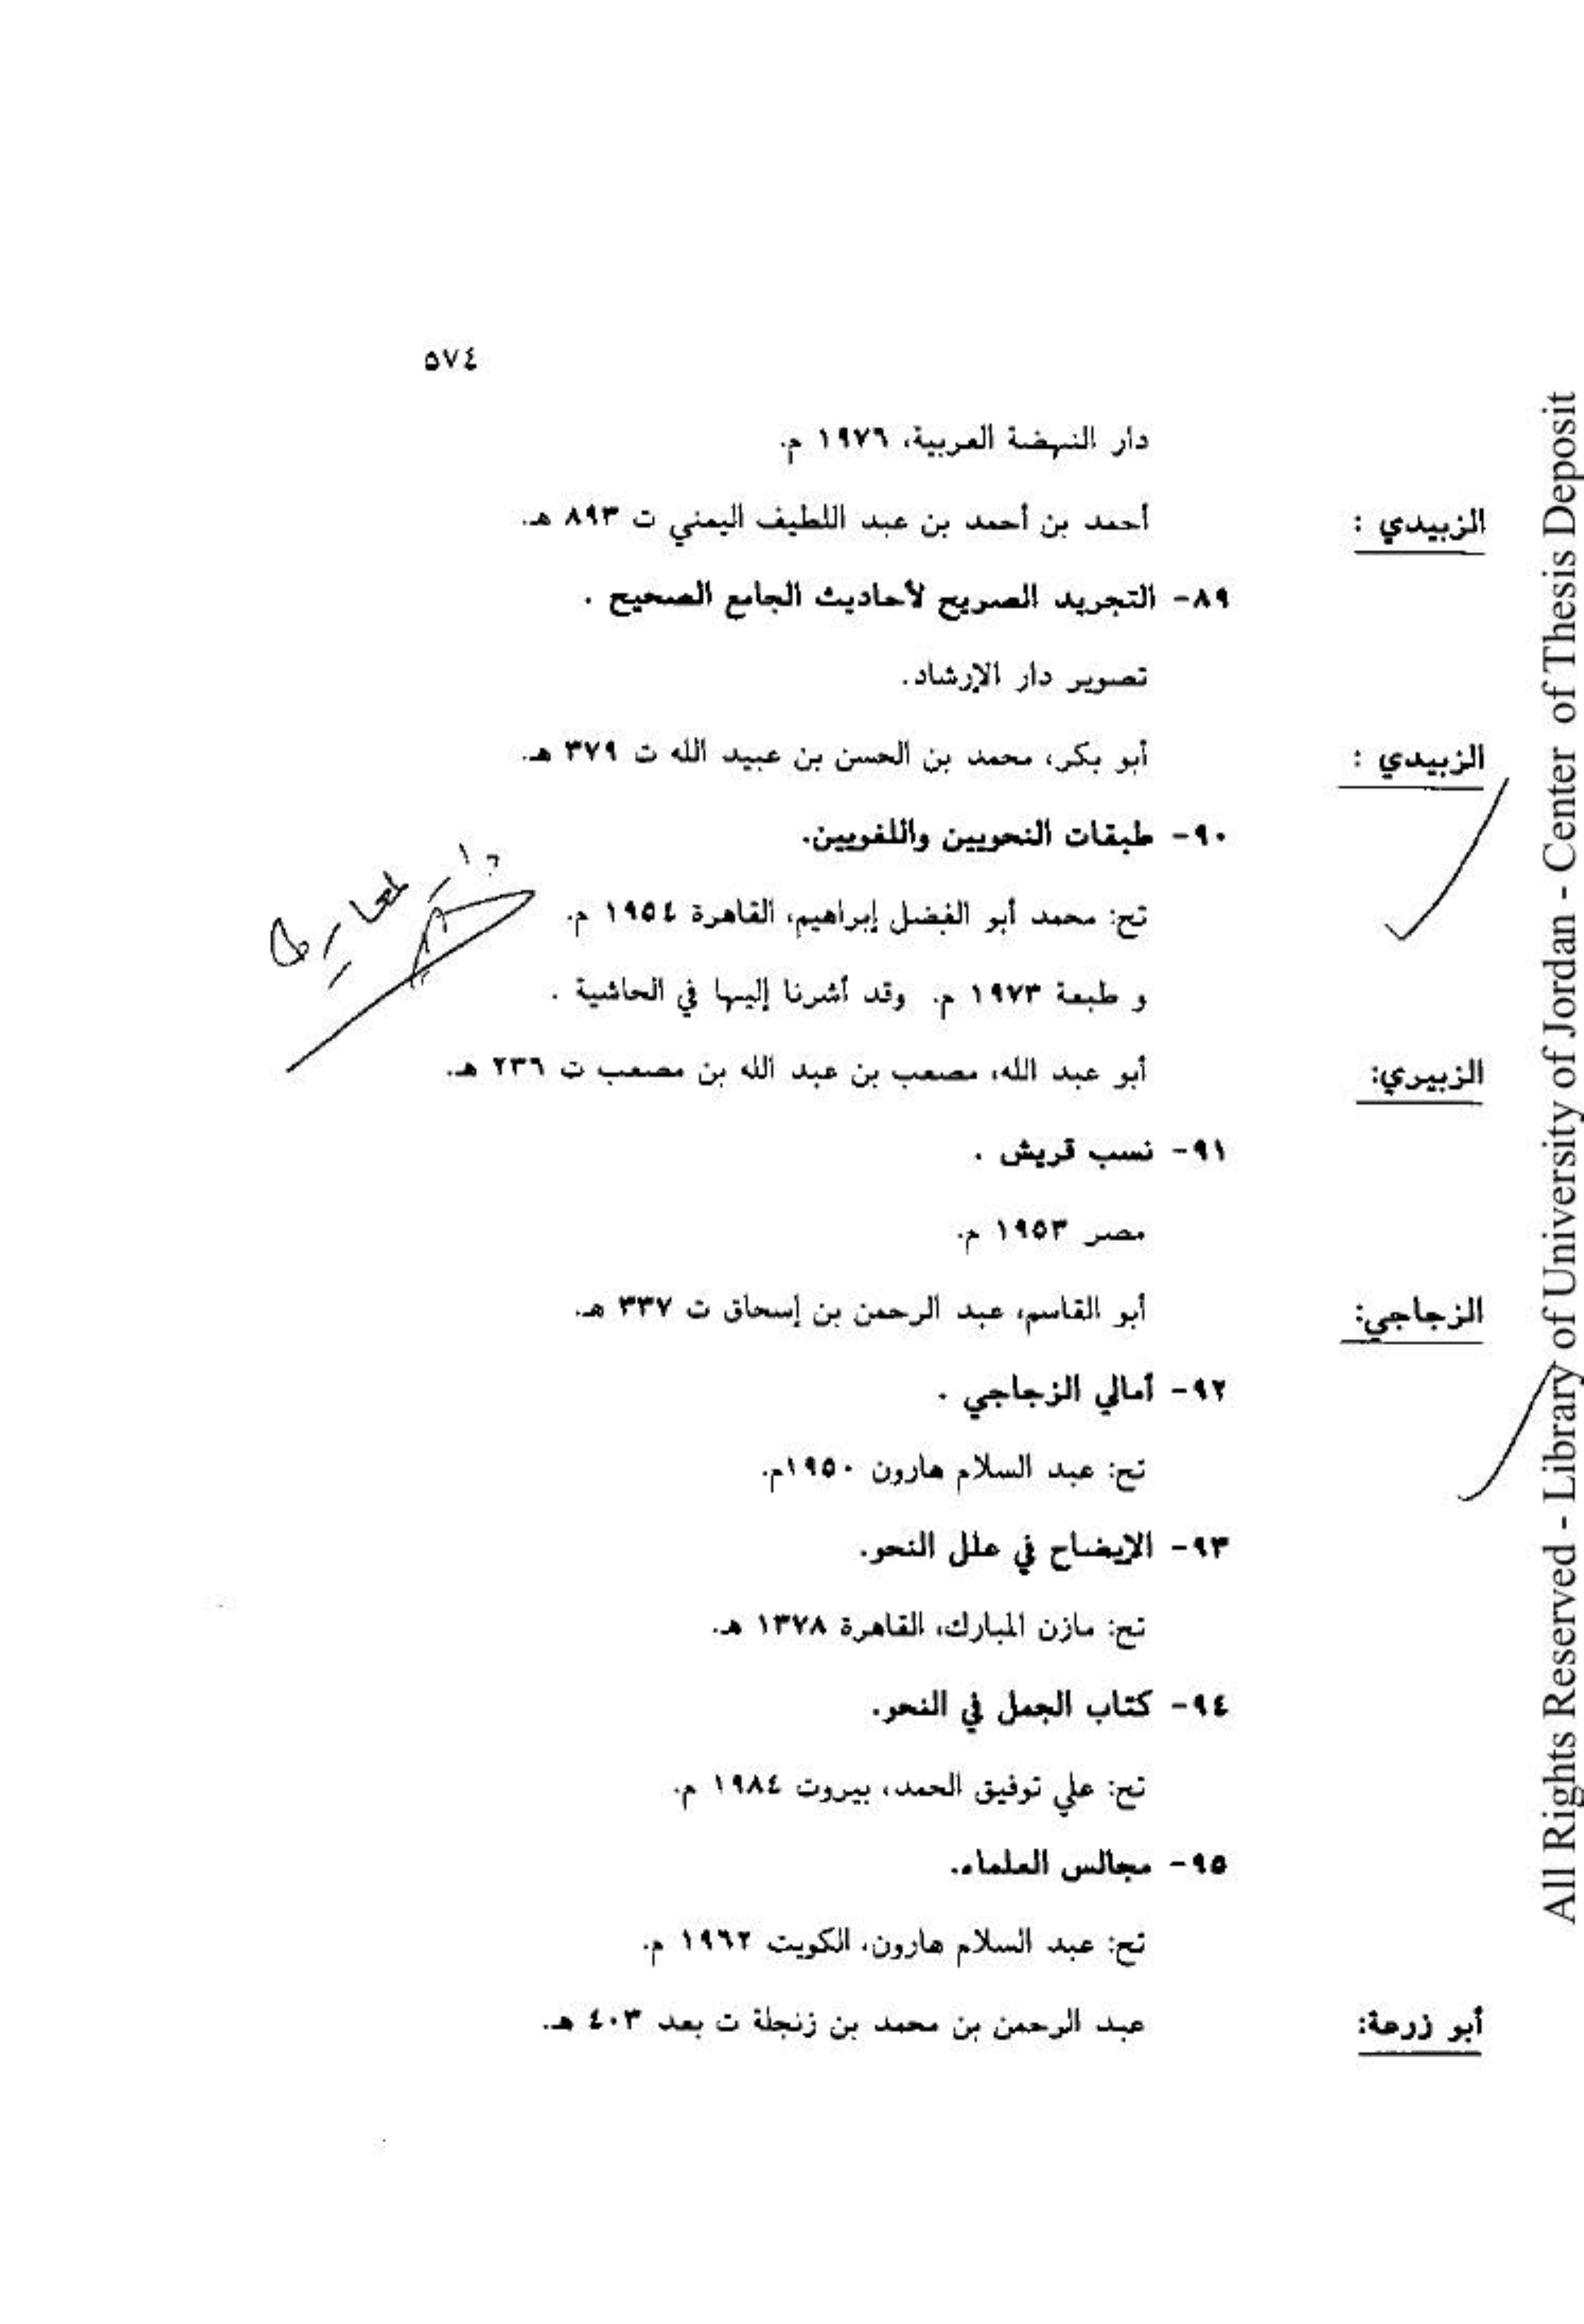 ٥٧٤
دار النهضة العربية، ١٩٧٦ م.
الزبيدي : أحمد بن أحمد بن عبد اللطيف اليمني ت ٨٩٣ هـ.
٨٩- التجريد الصريح لأحاديث الجامع الصحيح .
تصوير دار الإرشاد.
الزبيدي : أبو بكر، محمد بن الحسن بن عبيد الله ت ٣٧٩ هـ.
٩٠- طبقات النحويين واللغويين.
تح: محمد أبو الفضل إبراهيم، القاهرة ١٩٥٤ م.
و طبعة ١٩٧٣ م. وقد أشرنا إليها في الحاشية .
الزبيري: أبو عبد الله، مصعب بن عبد الله بن مصعب ت ٢٣٦ هـ.
٩١- نسب قريش .
مصر ١٩٥٣ م.
الزجاجي: أبو القاسم، عبد الرحمن بن إسحاق ت ٣٣٧ هـ.
٩٢- أمالي الزجاجي .
تح: عبد السلام هارون ١٩٥٠م.
٩٣- الإيضاح في علل النحو.
تح: مازن المبارك، القاهرة ١٣٧٨ هـ.
٩٤- كتاب الجمل في النحو.
تح: علي توفيق الحمد، بيروت ١٩٨٤ م.
٩٥- مجالس العلماء.
تح: عبد السلام هارون، الكويت ١٩٦٢ م.
أبو زرعة: عبد الرحمن بن محمد بن زنجلة ت بعد ٤٠٣ هـ.
All Rights Reserved - Library of University of Jordan - Center of Thesis Deposit